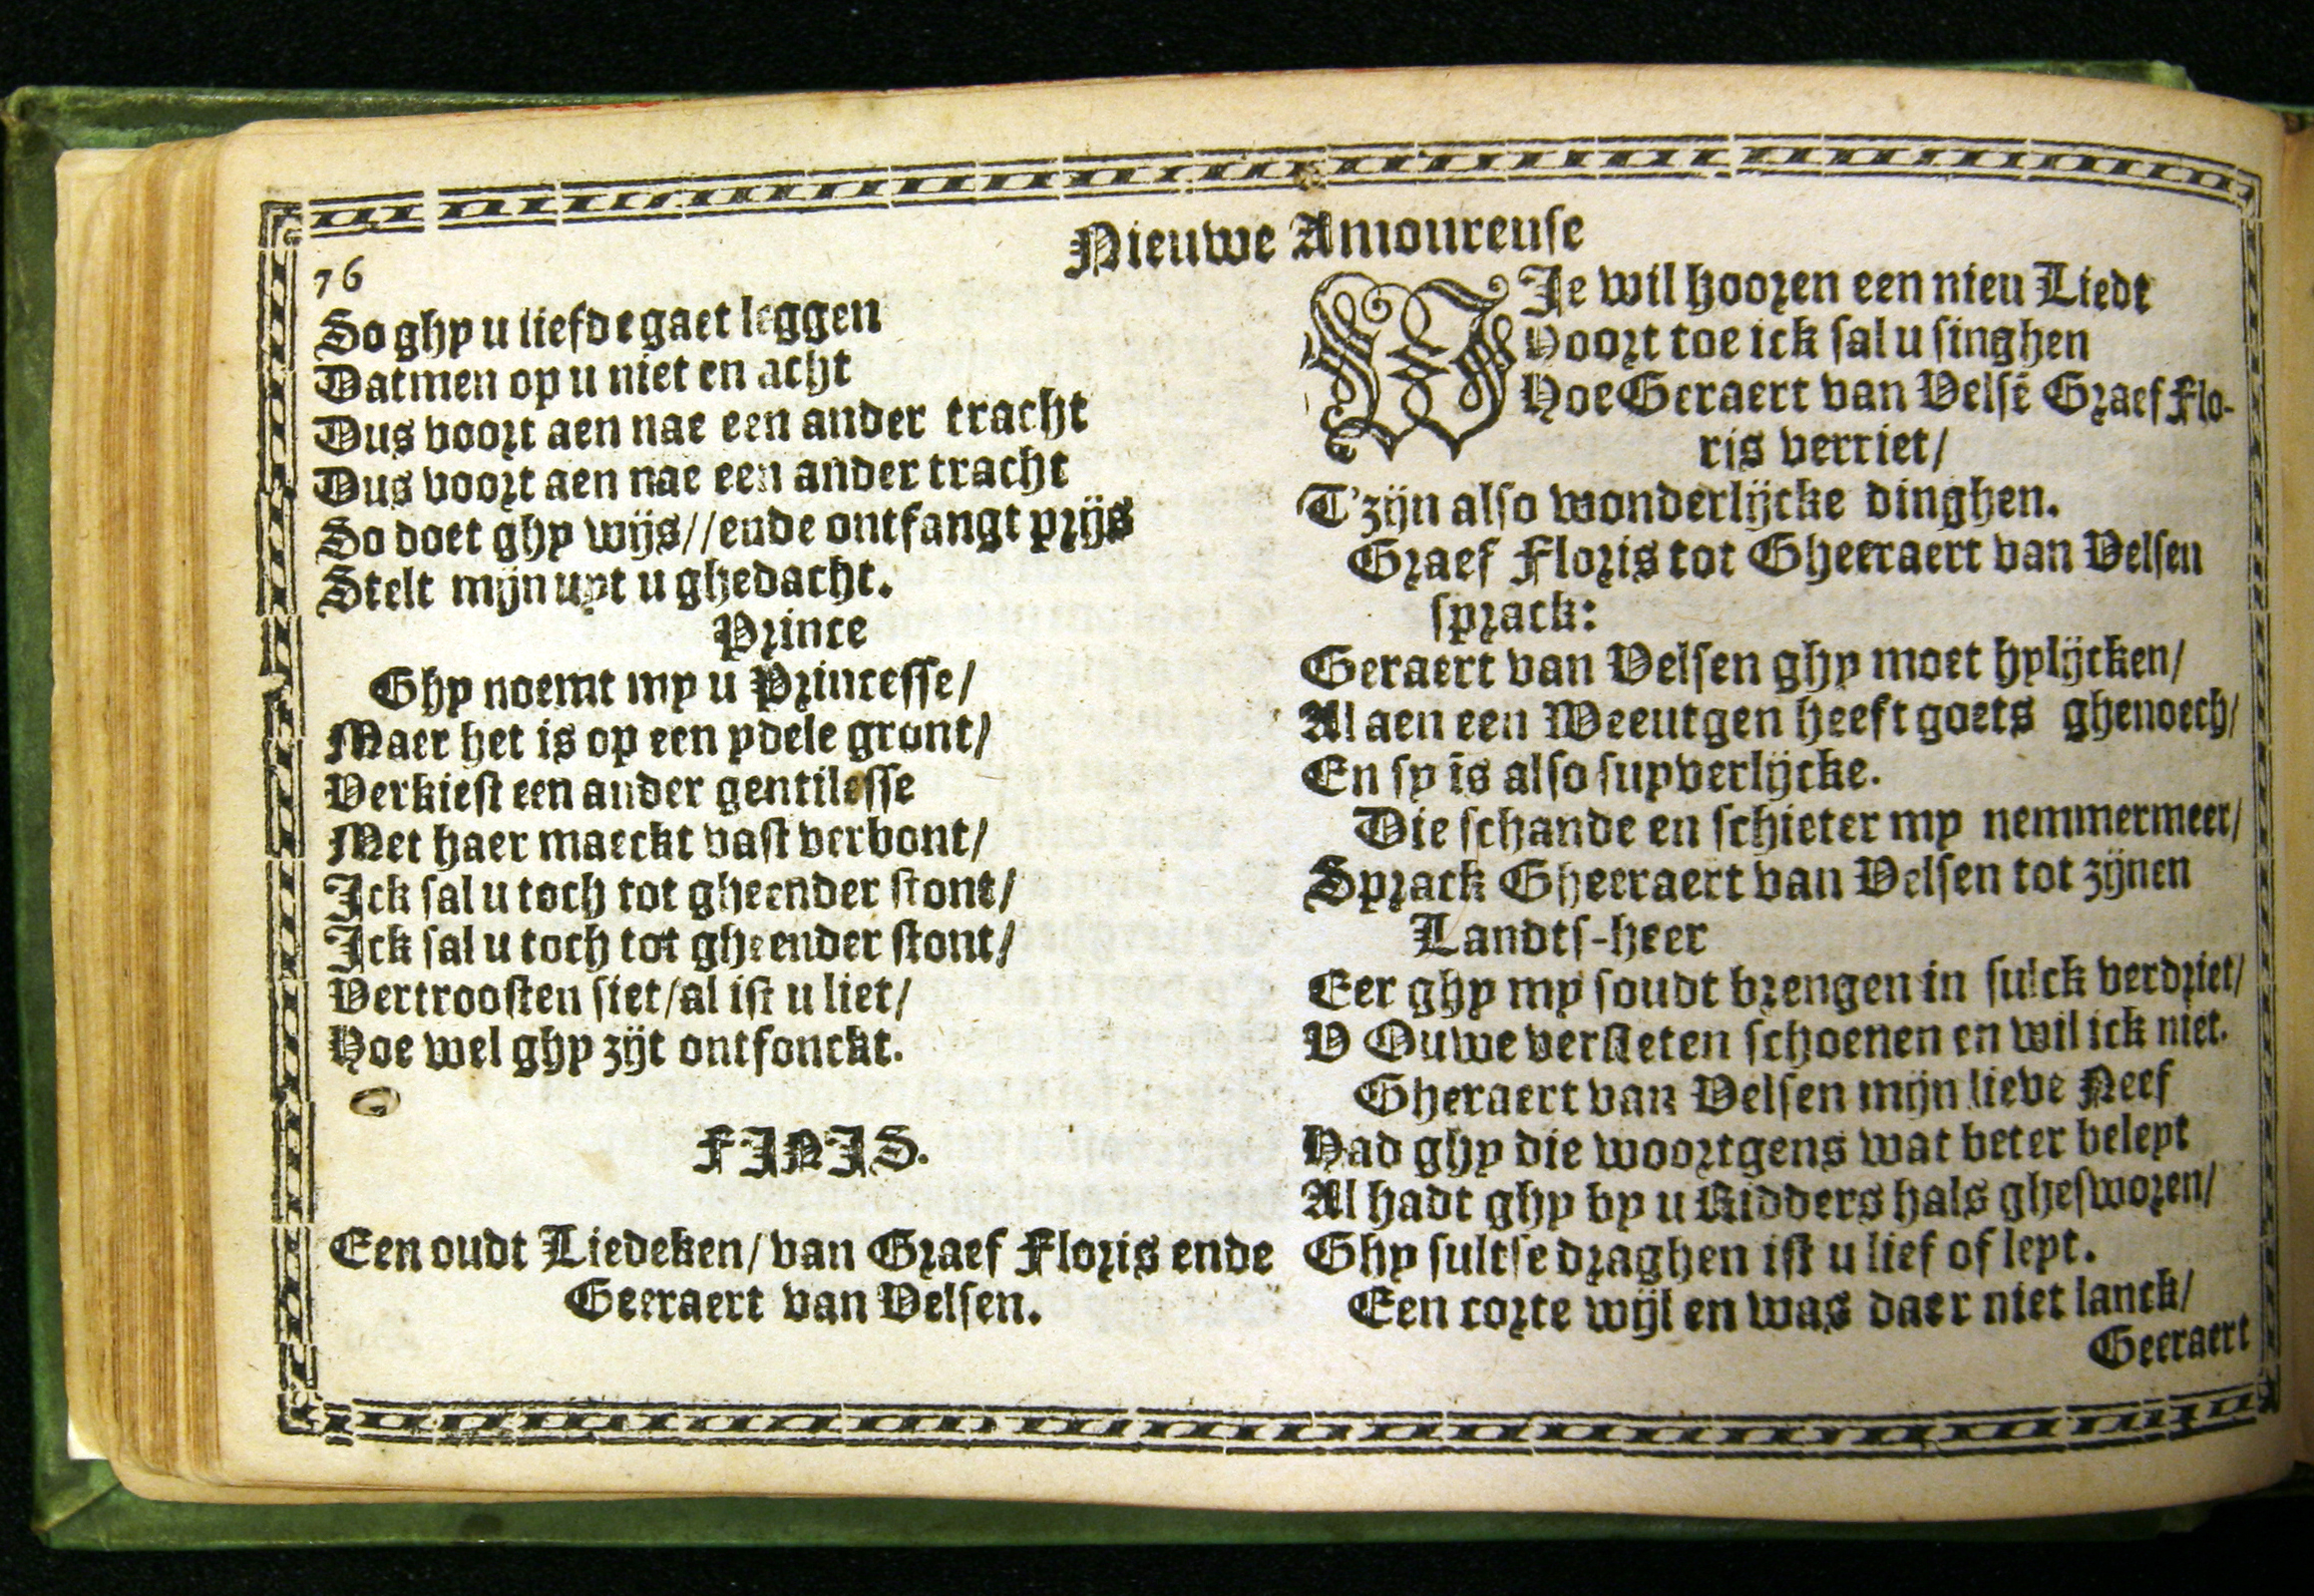 Nieuwe Amoureuse
76
So ghy u liefde gaet leggen
Datmen op u niet en acht
Dus voort aen nae een ander tracht
Dus voort aen nae een ander tracht
So doet ghy wijs//ende ontfangt prijs
Stelt mijn uyt u ghedacht.
Prince
Ghy noemt my u Princesse/
Maer het is op een ydele gront/
Verkiest een ander gentilesse
Met haer maeckt vast verbont/
Ick sal u toch tot gheender stont/
Ick sal u toch tot gheender stont/
Vertroosten siet/al ist u liet/
Hoe wel ghy zijt ontfonckt.
FINIS.
Een oudt Liedeken/van Graef Floris ende
Geeraert van Velsen.
WIe wil hooren een nieu Liedt
Hoort toe ick sal u singhen
Hoe Geraert van Velsē Graef Flo-
ris verriet/
T'zijn also wonderlijcke dinghen.
Graef Floris tot Gheeraert van Velsen
sprack:
Geraert van Velsen ghy moet hylijcken/
Al aen een Weeutgen heeft goets ghenoech/
En sy is also suyverlijcke.
Die schande en schieter my nemmermeer/
Sprack Gheeraert van Velsen tot zijnen
Landts-heer
Eer ghy my soudt brengen in sulck verdriet/
V Ouwe versleten schoenen en wil ick niet.
Gheraert van Velsen mijn lieve Neef
Had ghy die woortgens wat beter beleyt
Al hadt ghy by u Ridders hals ghesworen/
Ghy sultse draghen ist u lief of leyt.
Een corte wijl en was daer niet lanck/
Geeraert